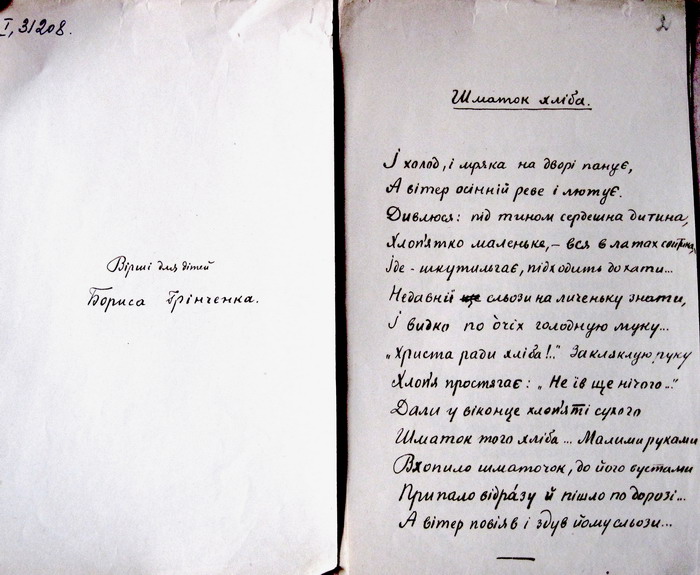 I, 31208.
Вірші для дітей
Бориса Грінченка.
2
Шматок хліба.
І холод, і мряка на дворі панує,
А вітер осінній реве і лютує.
Дивлюся: під тином сердешна дитина,
Хлопʼятко маленьке, – вся в латах свитина,
Іде - шкутильгає, підходить до хати...
Недавнії сльози на личеньку знати,
І видко по очіх голодную муку...
„Христа ради хліба!.." Закляклую руку
Хлопʼя простягає: „Не їв ще нічого..."
Дали у віконце хлопʼяті сухого
Шматок того хліба... Малими руками
Вхопило шматочок, до його вустами
Припало відра́зу й пішло по дорозі...
А вітер повіяв і здув йому сльози...